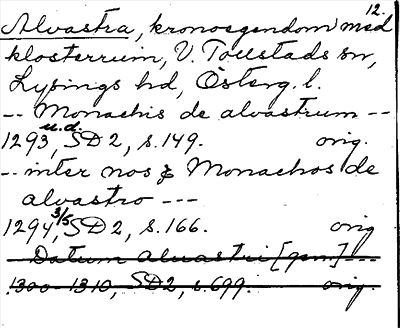 12.
Alvastra, kronoegendom med
klosterruin, V. Tollstads sn,
Lysings hd, Österg. l.
-- Monachis de alvastrum --
1293 u.d., SD 2, s. 149. orig.
-- inter nos & Monachos de
alvastro ---
1294 3/5, SD 2, s. 166. orig
Datum Aluastri [gm] ---
1300-1310, SD2, s. 699. orig.